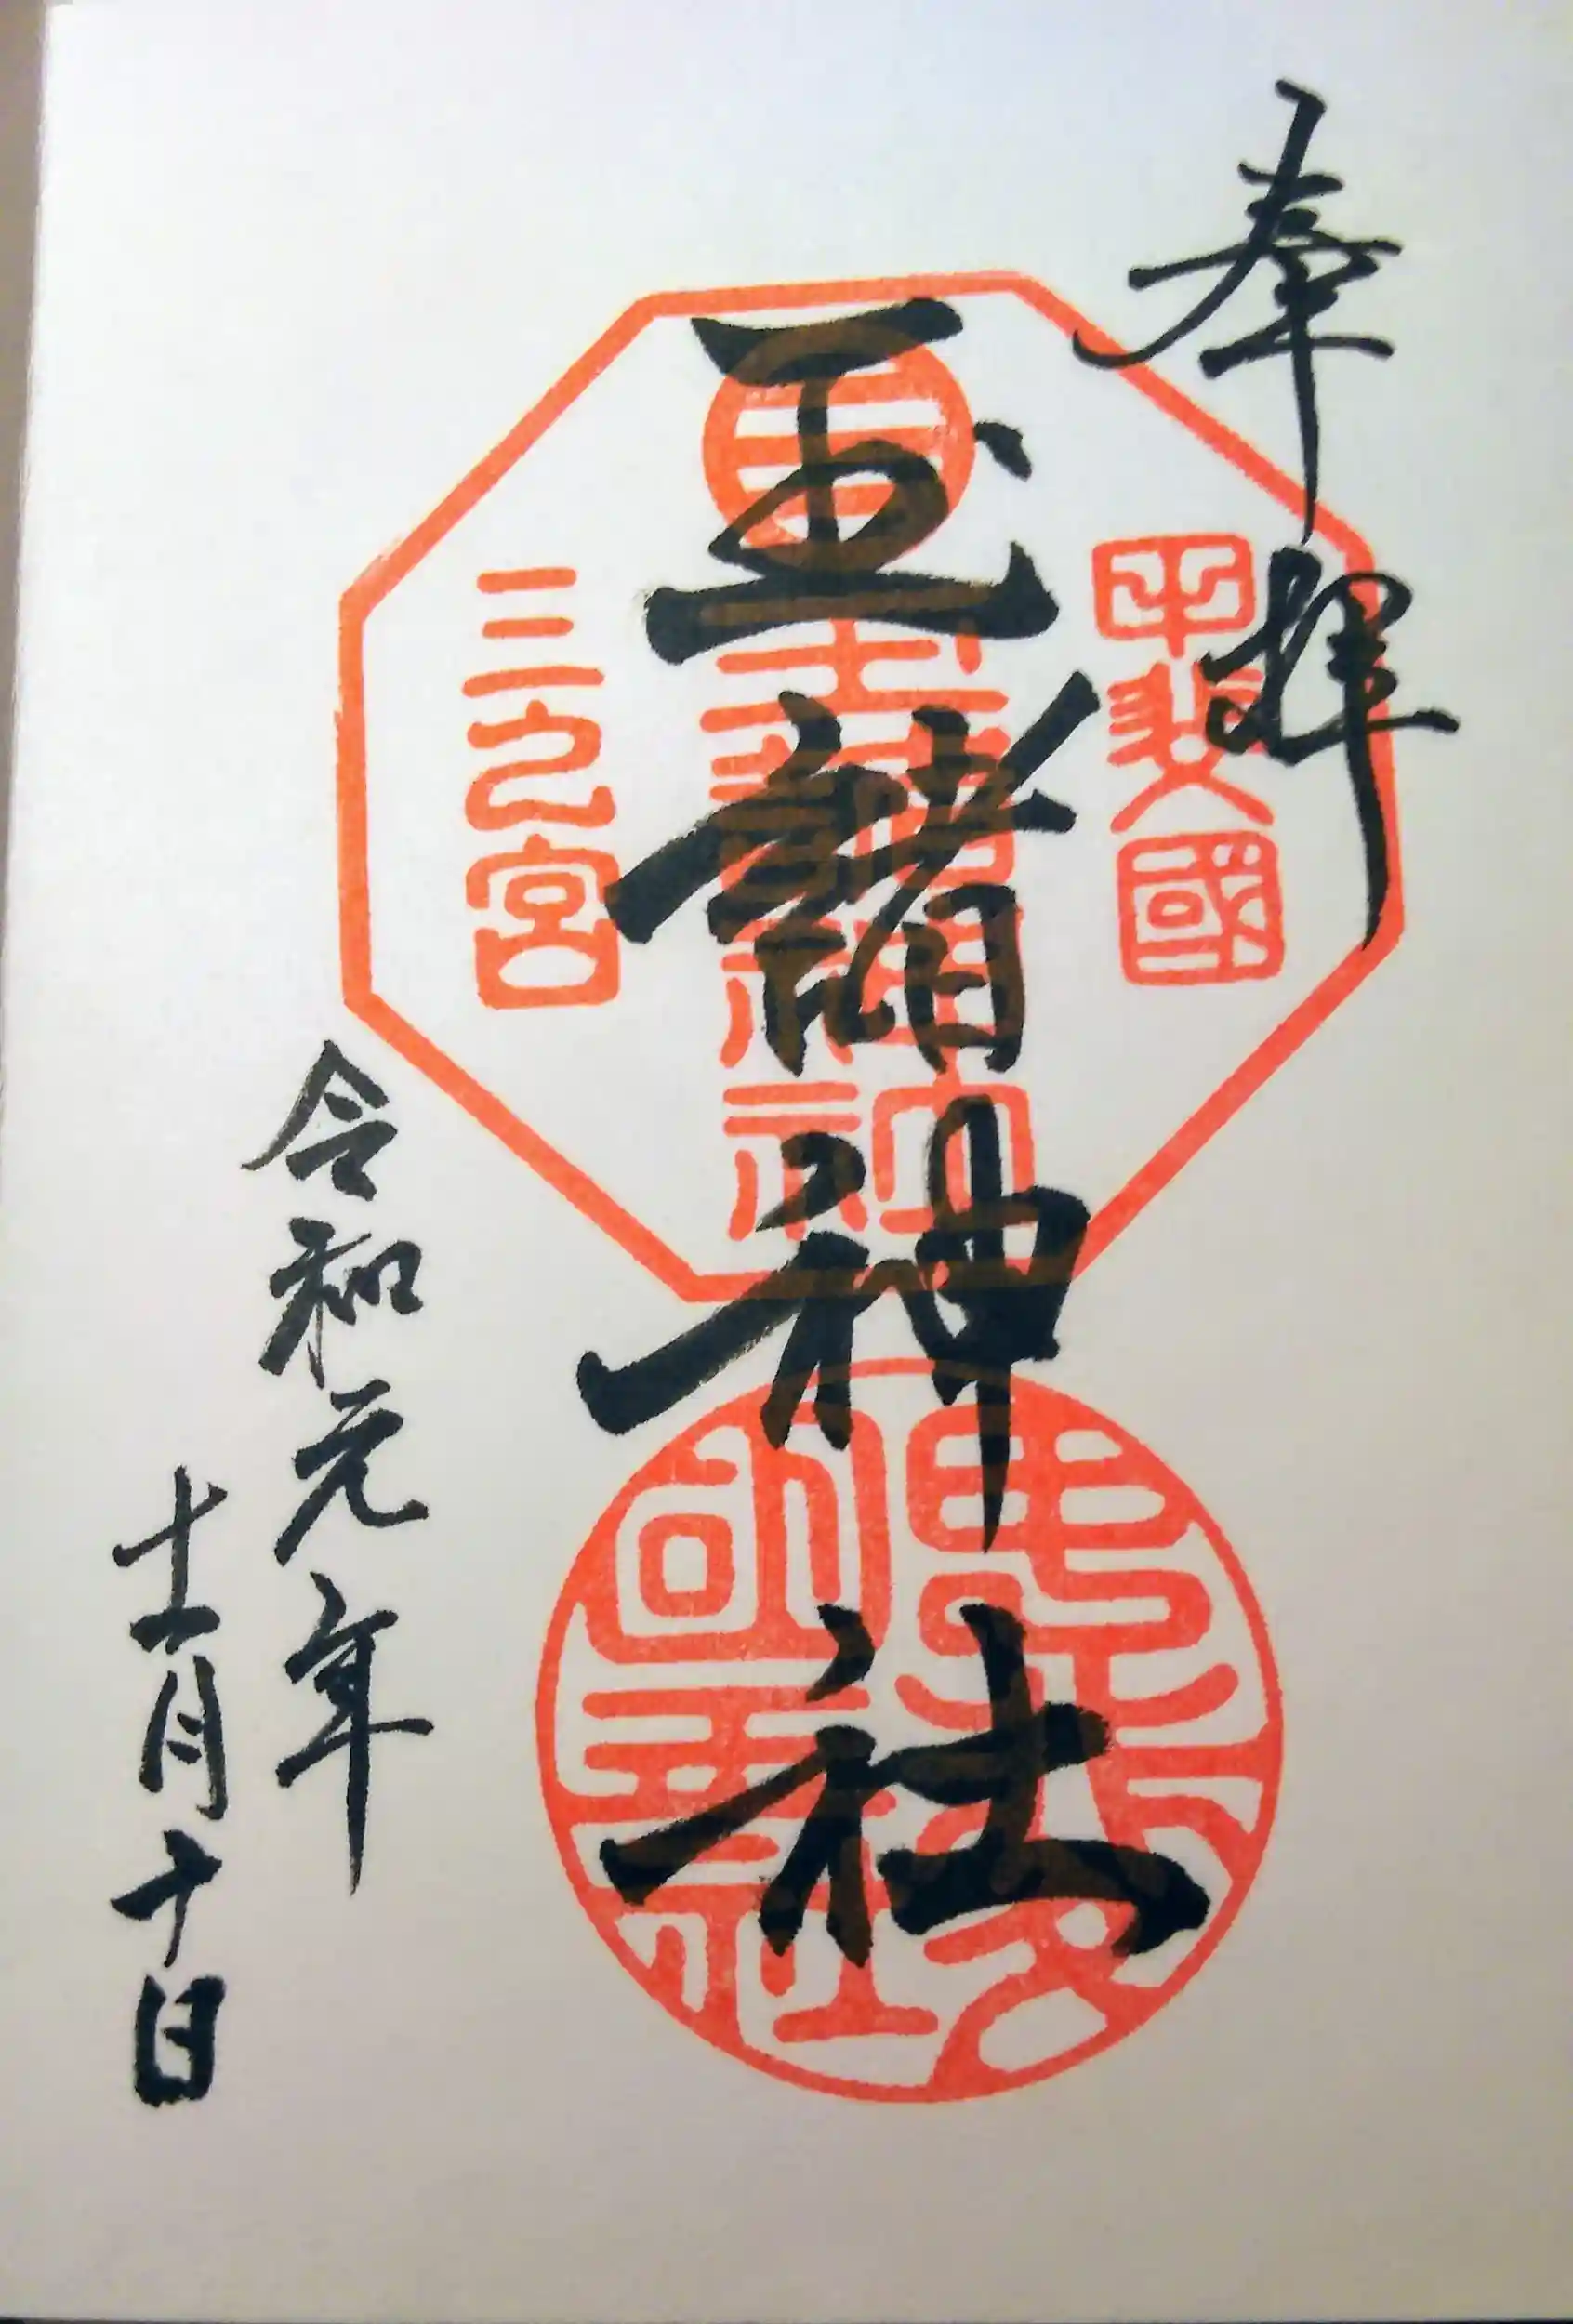 奉拝
甲斐國
玉諸神社
玉諸神社
三之宮
令和元年
十一月十日